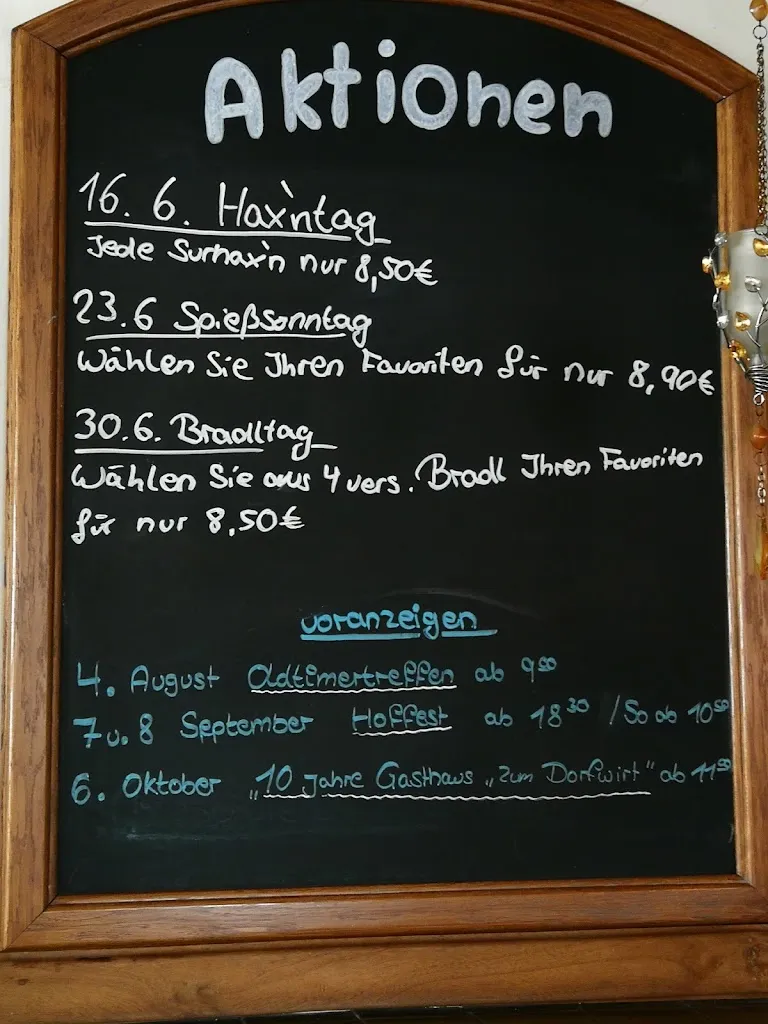 Aktionen
16. 6. Hax'ntag
Jede Surhax'n nur 8,50€
23.6 Spießsonntag
Wählen Sie Ihren Favoriten für nur 8,90€
30.6. Bradltag
Wählen Sie aus 4 vers. Bradl Ihren Favoriten
für nur 8,50€
voranzeigen
4. August Oldtimertreffen ab 9⁰⁰
7 u. 8 September Hoffest ab 18³⁰ / So ab 10⁰⁰
6. Oktober „10 Jahre Gasthaus „zum Dorfwirt" ab